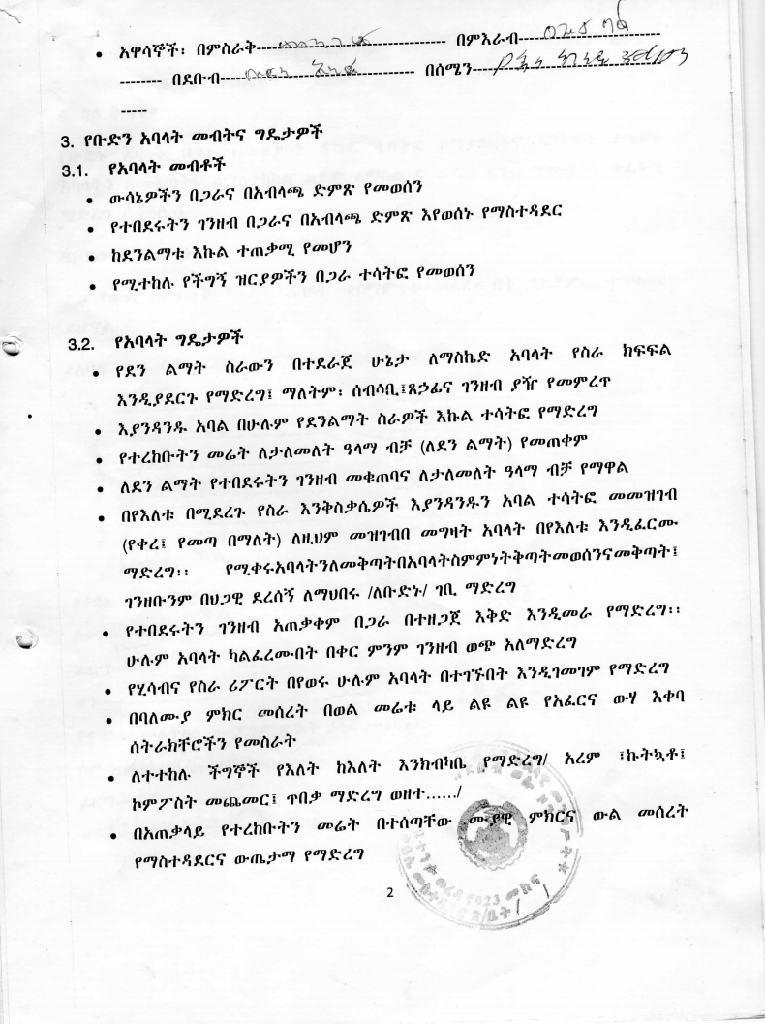 • አዋሳኞች፡ በምስራት-------------------------------- በምእራብ--------------------------
-------- በደቡብ-------------------------------- በሰሜን-----------------------------------
-----
3. የቡድን አባላት መብትና ግዴታዎች
3.1. የአባላት መብቶች
• ውሳኔዎችን በጋራና በአብላጫ ድምጽ የመወሰን
• የተበደሩትን ገንዘብ በጋራና በአብላጫ ድምጽ እየወሰኑ የማስተዳደር
• ከደንልማቱ እኩል ተጠቃሚ የመሆን
• የሚተከሉ የችግኝ ዝርያዎችን በጋራ ተሳትፎ የመወሰን
3.2. የአባላት ግዴታዎች
• የደን ልማት ስራውን በተደራጀ ሁኔታ ለማስኬድ አባላት የስራ ክፍፍል
እንዲያደርጉ የማድረግ፤ ማለትም፡ ሰብሳቢ፤ጸኃፊና ገንዘብ ያዥ የመምረጥ
• እያንዳንዱ አባል በሁሉም የደንልማት ስራዎች እኩል ተሳትፎ የማድረግ
• የተረከቡትን መሬት ለታለመለት ዓላማ ብቻ (ለደን ልማት) የመጠቀም
• ለደን ልማት የተበደሩትን ገንዘብ መቁጠባና ለታለመለት ዓላማ ብቻ የማዋል
• በየእለቱ በሚደረጉ የስራ እንቅስቃሴዎች እያንዳንዱን አባል ተሳትፎ መመዝገብ
(የቀረ፤ የመጣ በማለት) ለዚህም መዝገብበ መግዛት አባላት በየእለቱ እንዲፈርሙ
ማድረግ፡፡ የሚቀሩአባላትንለመቅጣትበአባላትስምምነትቅጣትመወሰንናመቅጣት፤
ገንዘቡንም በህጋዊ ደረሰኝ ለማህበሩ /ለቡድኑ/ ገቢ ማድረግ
• የተበደሩትን ገንዘብ አጠቃቀም በጋራ በተዘጋጀ እቅድ እንዲመራ የማድረግ፡፡
ሁሉም አባላት ካልፈረሙበት በቀር ምንም ገንዘብ ወጭ አለማድረግ
• የሂሳብና የስራ ሪፖርት በየወሩ ሁሉም አባላት በተገኙበት እንዲገመገም የማድረግ
• በባለሙያ ምክር መሰረት በወል መሬቱ ላይ ልዩ ልዩ የአፈርና ውሃ እቀባ
ሰትራክቸሮችን የመስራት
• ለተተከሉ ችግኞች የእለት ከእለት እንክብካቤ የማድረግ/ አረም ፣ኩትኳቶ፤
ኮምፖስት መጨመር፤ ጥበቃ ማድረግ ወዘተ……/
• በአጠቃላይ የተረከቡትን መሬት በተሰጣቸው ሙያዊ ምክርና ውል መሰረት
የማስተዳደርና ውጤታማ የማድረግ
2